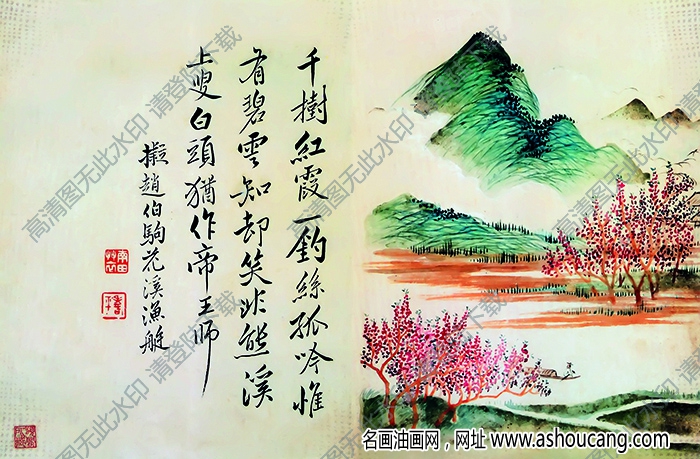 千樹紅霞一釣絲孤吟惟
有碧雲知却笑非熊溪
上叟白頭猶作帝王師
擬趙伯駒花溪漁艇
壽平
高清图无此水印 请登陆下载
高清图无此水印 请登陆下载
高清图无此水印 请登陆下载
名画油画网，网址 www.ashoucang.com